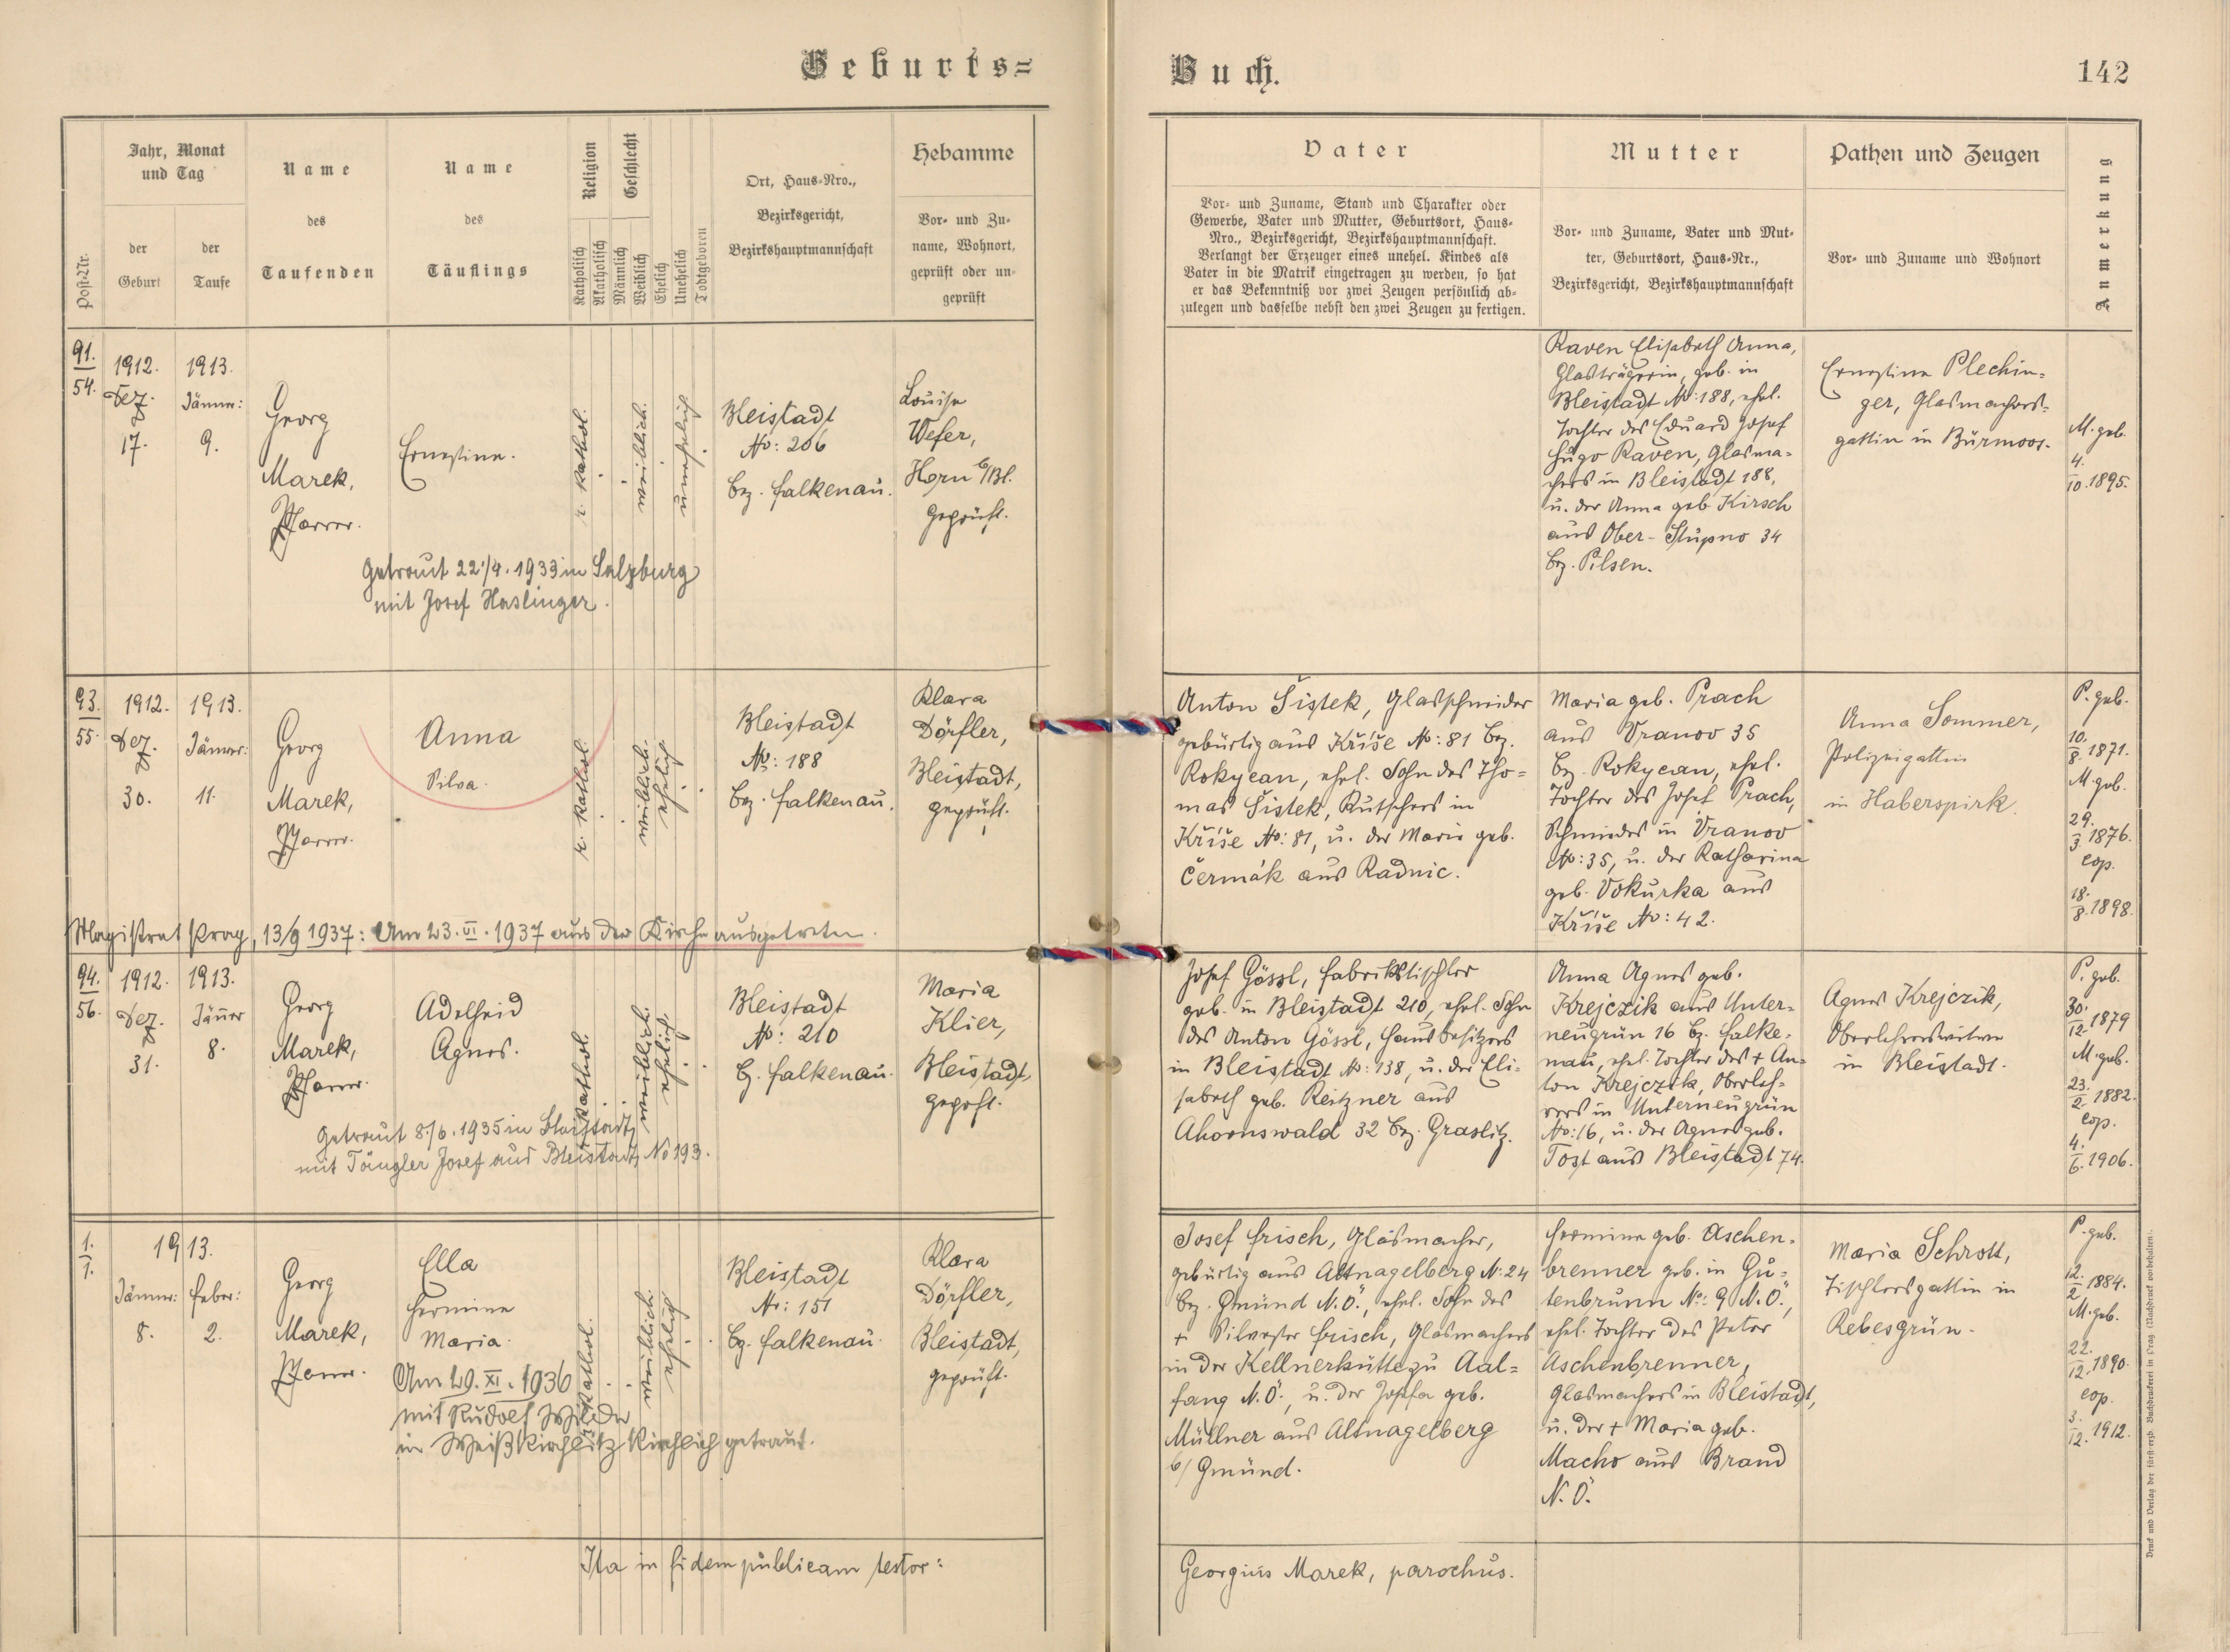 Geburts=
Buch.
142
Post-Nr.
Jahr, Monat
und Tag
der
Geburt
der
Taufe
Name
des
Taufenden
Name
des
Täuflings
Religion
Katholisch
Akatholisch
Geschlecht
Männlich
Weiblich
Ehelich
Unehelich
Todtgeboren
Ort, Haus-Nro.,
Bezirksgericht,
Bezirkshauptmannschaft
Hebamme
Vor- und Zu-
name, Wohnort,
geprüft oder un-
geprüft
Vater
Vor- und Zuname, Stand und Charakter oder
Gewerbe, Vater und Mutter, Geburtsort, Haus-
Nro., Bezirksgericht, Bezirkshauptmannschaft.
Verlangt der Erzeuger eines unehel. Kindes als
Vater in die Matrik eingetragen zu werden, so hat
er das Bekenntniß vor zwei Zeugen persönlich ab-
zulegen und dasselbe nebst den zwei Zeugen zu fertigen.
Mutter
Vor- und Zuname, Vater und Mut-
ter, Geburtsort, Haus-Nr.,
Bezirksgericht, Bezirkshauptmannschaft
Pathen und Zeugen
Vor- und Zuname und Wohnort
Anmerkung
91.
54.
1912.
Dez.
17.
1913.
Jänner:
9.
Georg
Marek,
Pfarrer.
Ernestine.
r. kathol.
weiblich.
unehelich
Bleistadt
No: 206
Bez. Falkenau.
Louise
Wefer,
Horn b/Bl.
geprüft.
Getraut 22./4. 1933 in Salzburg
mit Josef Haslinger.
Raven Elisabeth Anna,
Glasträgerin, geb. in
Bleistadt No: 188, ehel.
Tochter des Eduard Josef
Hugo Raven, Glasma-
chers in Bleistadt 188,
u. der Anna geb. Kirsch
aus Ober-Stupno 34
Bez. Pilsen.
Ernestine Plechin=
ger, Glasmachers-
gattin in Bürmoos.
M. geb.
4.
10. 1895.
93.
55.
1912.
Dez.
30.
1913.
Jänner:
11.
Georg
Marek,
Pfarrer.
Anna
Silva.
r. kathol.
weiblich.
ehelich
Bleistadt
No: 188
Bez. Falkenau.
Klara
Dörfler,
Bleistadt,
geprüft.
Anton Šistek, Glasschneider
gebürtig aus Kříše No: 81 Bez.
Rokycan, ehel. Sohn des Tho=
mas Šistek, Kutschers in
Kříše No: 81, u. der Maria geb.
Čermák aus Radnic.
Maria geb. Prach
aus Vranov 35
Bez. Rokycan, ehel.
Tochter des Josef Prach,
Schmiedes in Vranov
No: 35, u. der Katharina
geb. Vokurka aus
Kříše No: 42.
Anna Sommer,
Polizeigattin
in Haberspirk.
P. geb.
10.
8. 1871.
M. geb.
29.
3. 1876.
cop.
18.
8. 1898.
Magistrat Prag, 13/9 1937: Am 23. VI. 1937 aus der Kirche ausgetreten.
94.
56.
1912.
Dez.
31.
1913.
Jänner
8.
Georg
Marek,
Pfarrer.
Adelheid
Agnes.
r. kathol.
weiblich.
ehelich
Bleistadt
No: 210
Bz. Falkenau.
Maria
Klier,
Bleistadt,
geprft.
Getraut 8./6. 1935 in Bleistadt,
mit Tängler Josef aus Bleistadt, No 193.
Josef Gössl, Fabrikstischler
geb. in Bleistadt 210, ehel. Sohn
des Anton Gössl, Hausbesitzers
in Bleistadt No: 138, u. der Eli-
sabeth geb. Reitzner aus
Ahornswald 32 Bez. Graslitz.
Anna Agnes geb.
Krejczik aus Unter-
neugrün 16 Bz. Falke-
nau, ehel. Tochter des + An-
ton Krejczik, Oberleh-
rers in Unterneugrün
No: 16, u. der Agnes geb.
Tost aus Bleistadt 74.
Agnes Krejczik,
Oberlehrerswitwe
in Bleistadt.
P. geb.
30.
12. 1879
M. geb.
23.
2. 1882.
cop.
4.
6. 1906.
1.
1.
1913.
Jänner:
8.
Feber:
2.
Georg
Marek,
Pfarrer.
Ella
Hermine
Maria.
r. kathol.
weiblich.
ehelich
Bleistadt
Nr: 151
Bz. Falkenau.
Klara
Dörfler,
Bleistadt,
geprüft.
Am 29. XI. 1936
mit Rudolf
in Weißkirchlitz kirchlich getraut.
Josef Frisch, Glasmacher,
gebürtig aus Altnagelberg N: 24
Bez. Gmünd N.Ö., ehel. Sohn des
+ Silvester Frisch, Glasmachers
in der Kellnerhütte zu Aal=
fang N.Ö., u. der Josefa geb.
Müllner aus Altnagelberg
b/ Gmünd.
Hermine geb. Aschen-
brenner geb. in Gu-
tenbrunn No: 9 N.Ö.,
ehel. Tochter des Peter
Aschenbrenner,
Glasmachers in Bleistadt,
u. der + Maria geb.
Macho aus Brand
N.Ö.
Maria Schrott,
Tischlersgattin in
Rebesgrün.
P. geb.
12.
2. 1884.
M. geb.
22.
12. 1890.
cop.
3.
12. 1912.
Ita in fidem publicam testor:
Georgius Marek, parochus.
Druck und Verlag der fürst-erzb. Buchdruckerei in Prag. (Nachdruck vorbehalten).